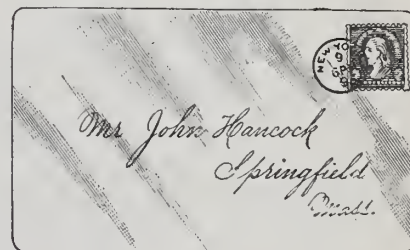 NEW YO
9
6 P
9
Mr John Hancock
Springfield
Mass.